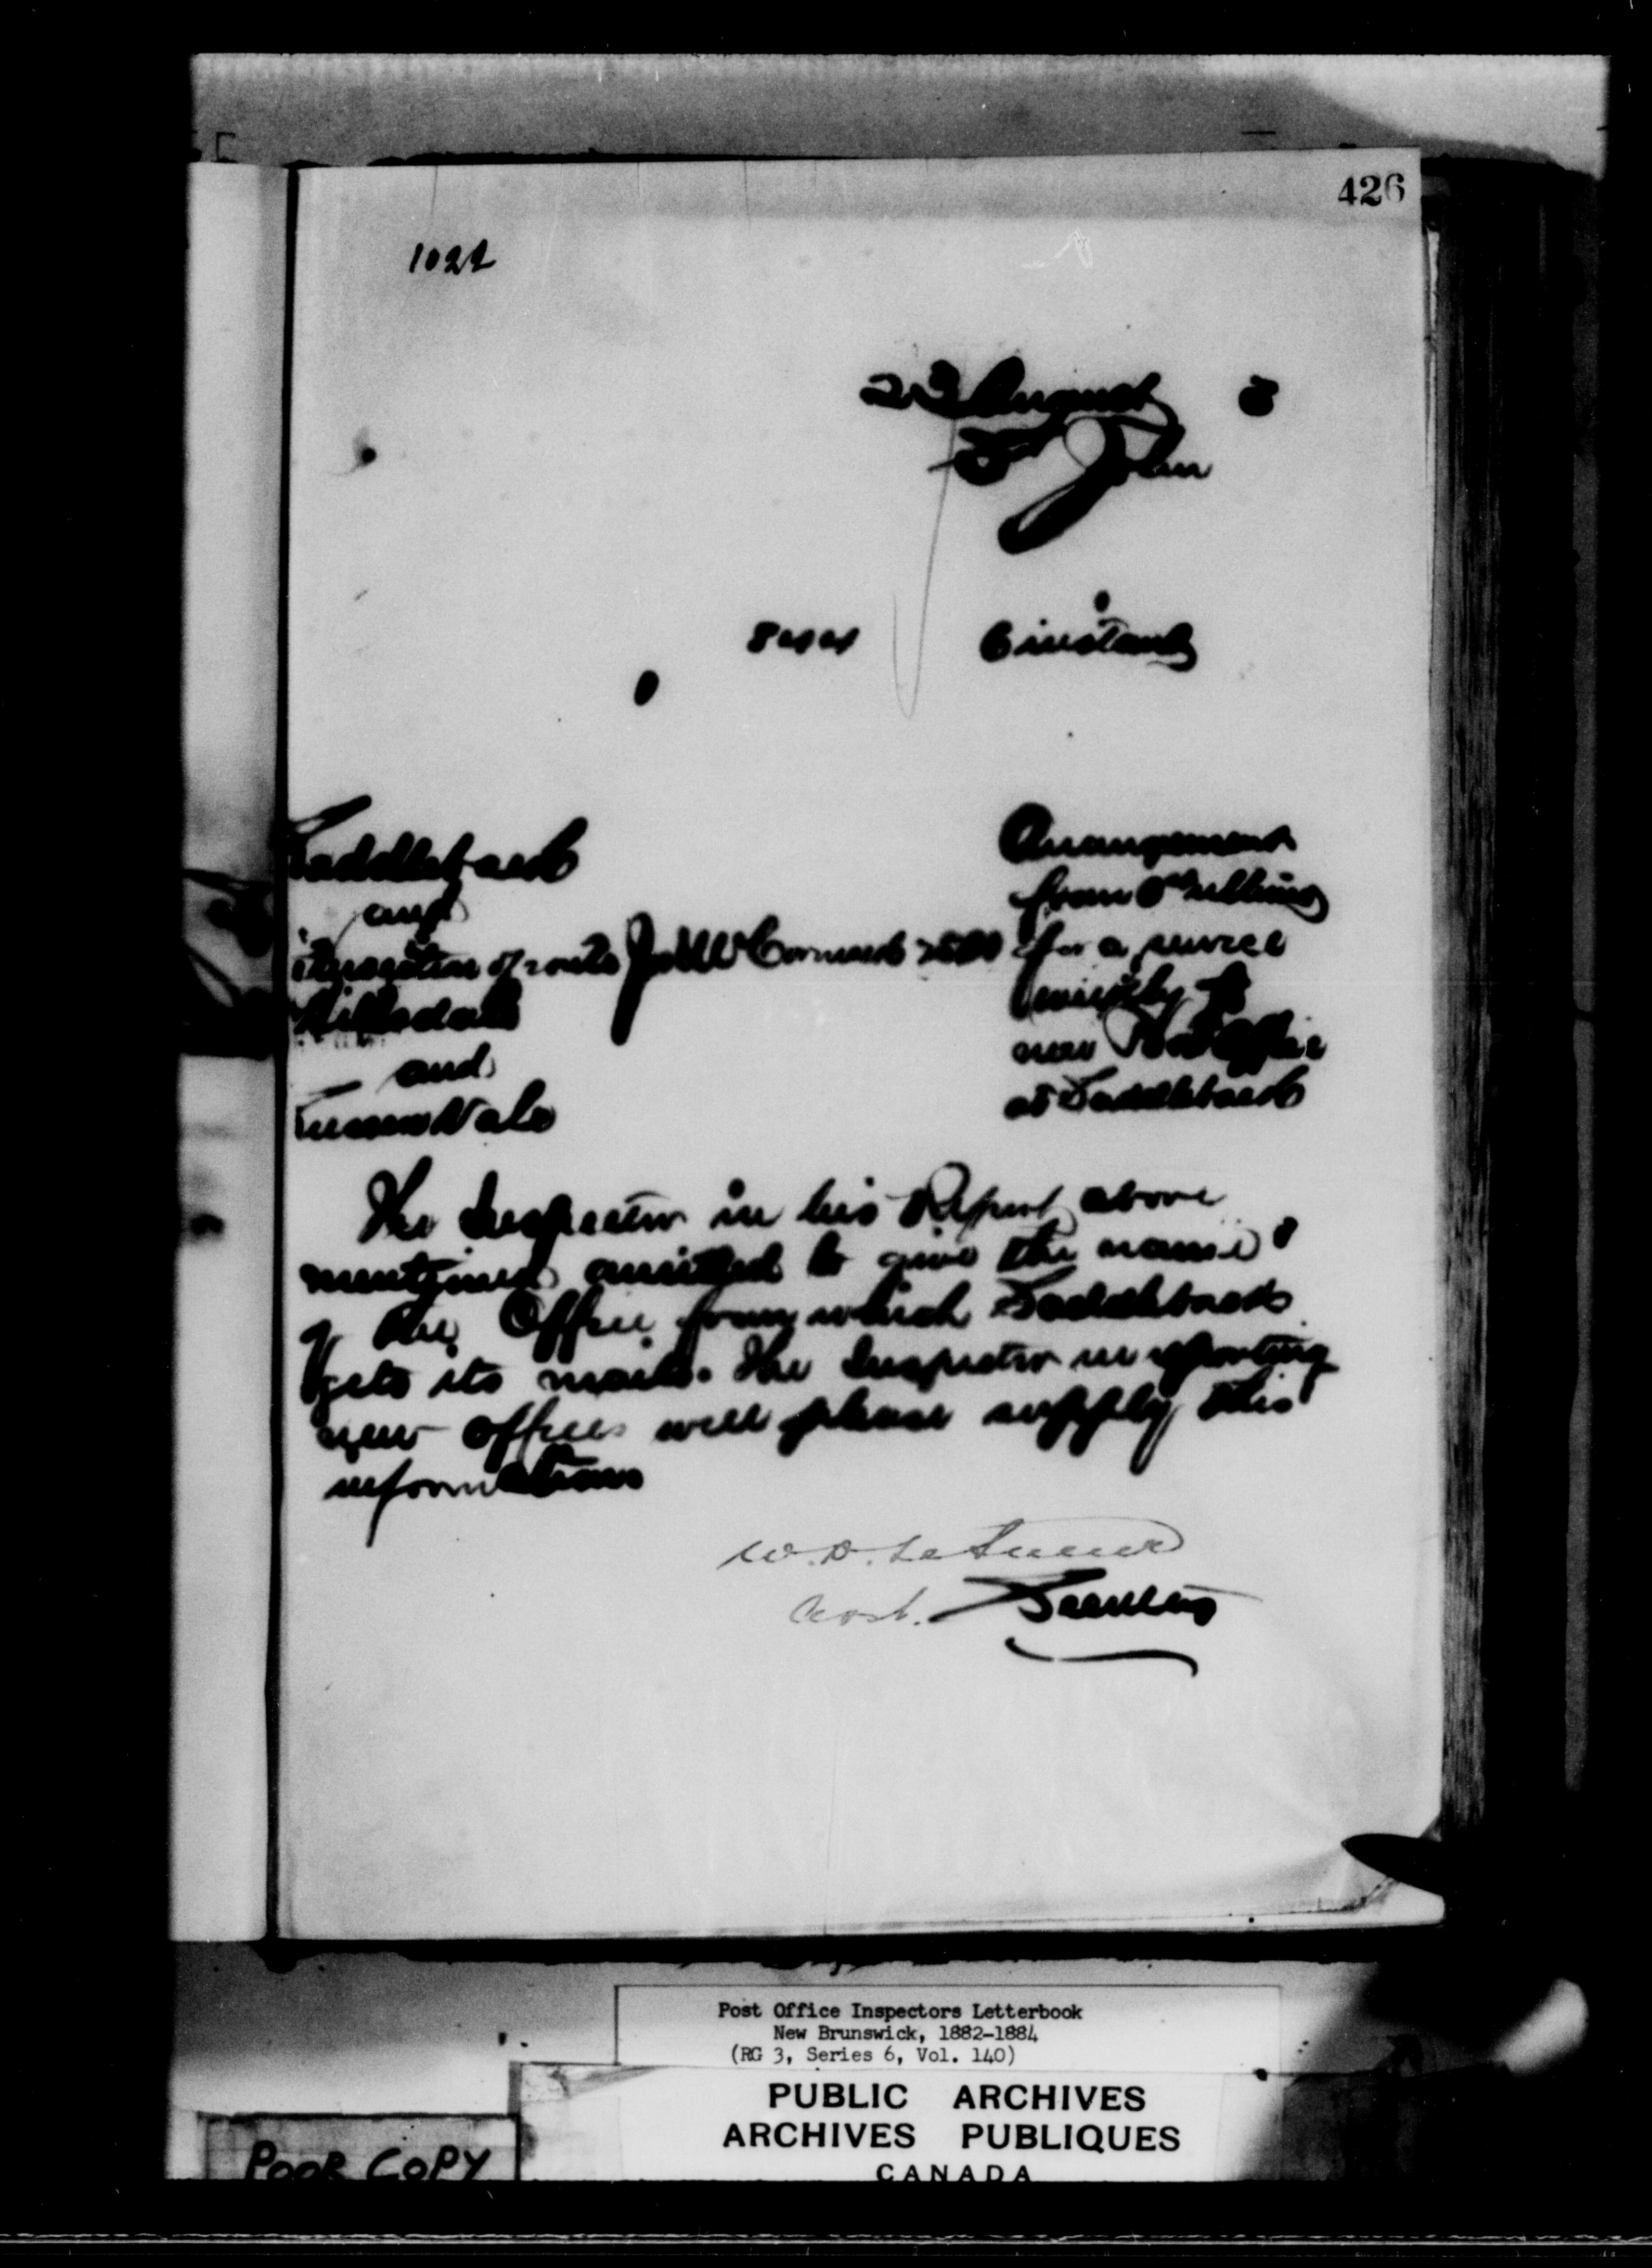 426
1022
23 August 3
St John
6 instant
Saddleback
and
intersection of route
Hillsdale
and
Jas McCormick 25.00
Arrangement
from 1st
for a service
weekly to
new Post Office
at Saddleback
The Inspector in his Report above
mentioned omitted to give the name
of the Office from which Saddleback
gets its mails. The Inspector in reporting
new offices will please supply this
information
W.D. LeSueur
for Secretary
Post Office Inspectors Letterbook
New Brunswick, 1882-1884
(RG 3, Series 6, Vol. 140)
PUBLIC ARCHIVES
ARCHIVES PUBLIQUES
CANADA
POOR COPY